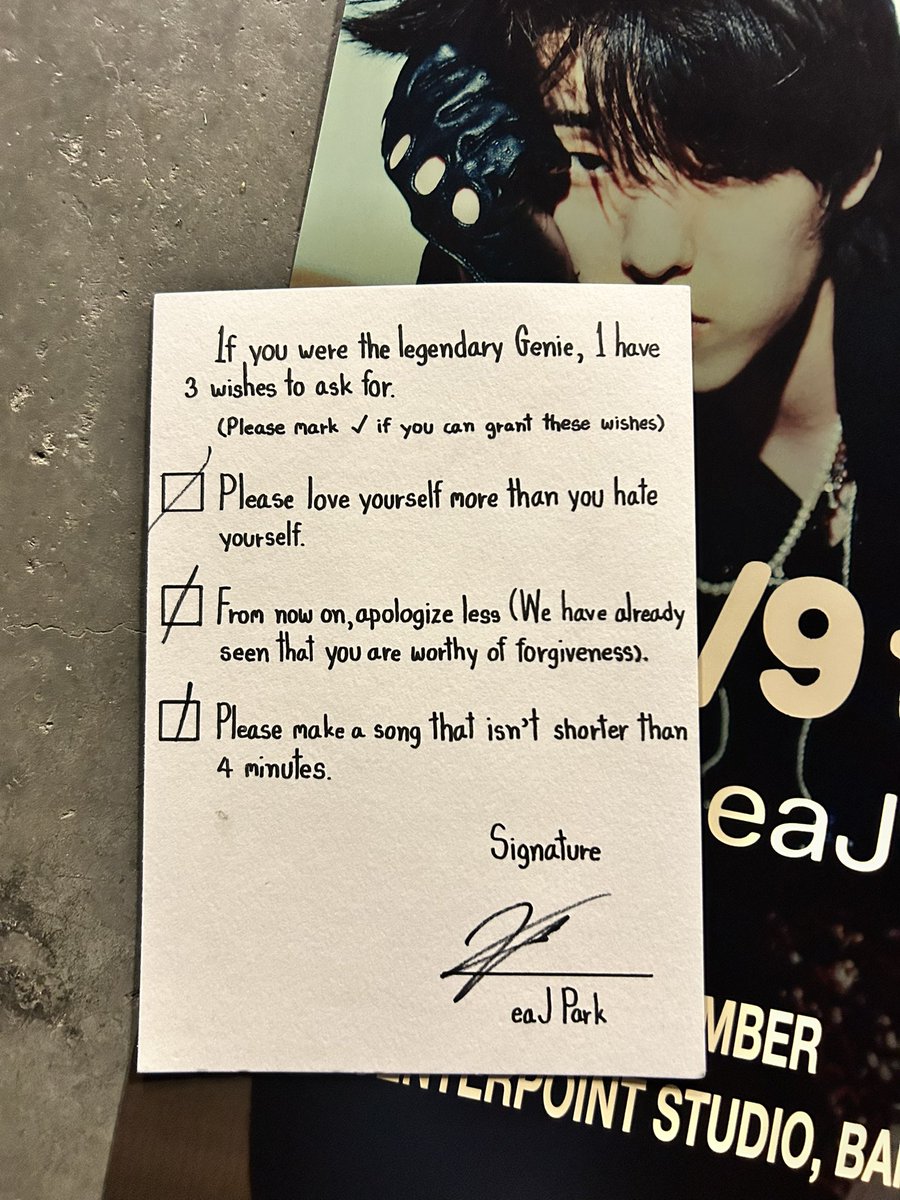 If you were the legendary Genie, I have
3 wishes to ask for.
(Please mark ✓ if you can grant these wishes)
Please love yourself more than you hate
yourself.
From now on, apologize less (We have already
seen that you are worthy of forgiveness).
Please make a song that isn't shorter than
4 minutes.
Signature
eaJ Park
/9
eaJ
MBER
ENTERPOINT STUDIO, BA